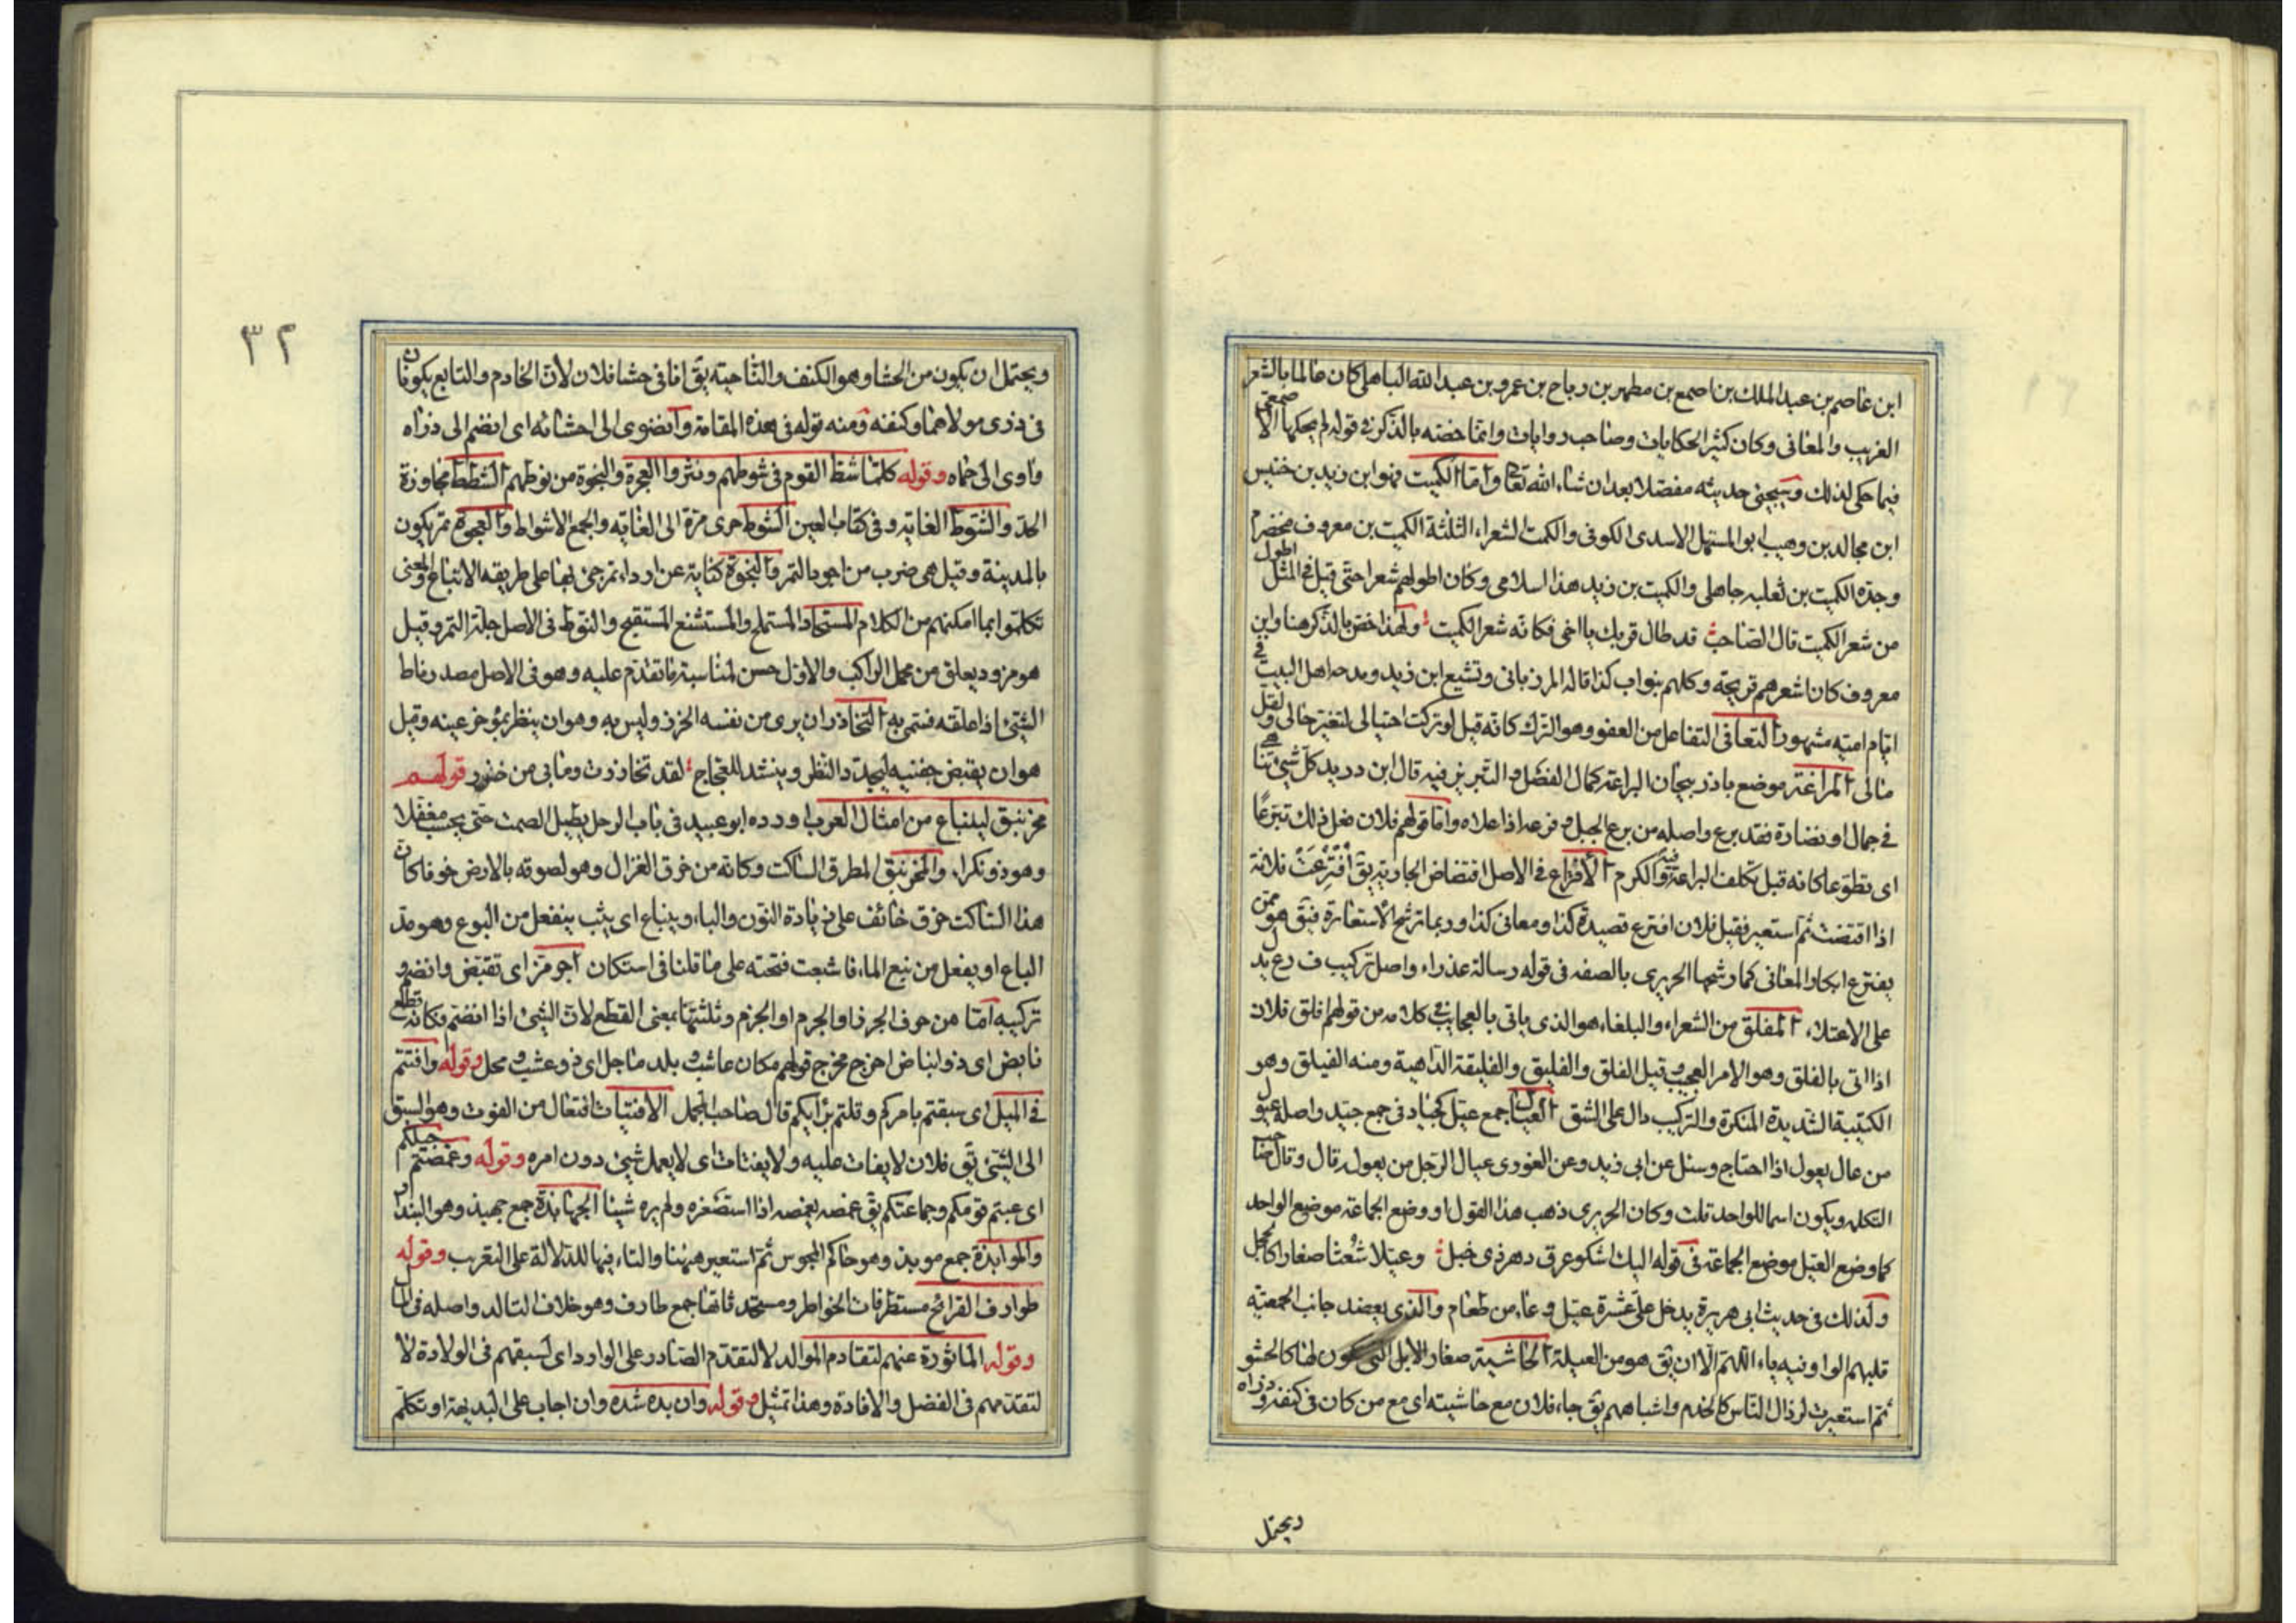 ابن عاصم بن عبد الملك بن اصمع بن مطهر بن رباح بن عمرو بن عبد الله الباهلى كان عالما بالشعر
الغريب والمعانى وكان كثير الحكايات وصاحب روايات وانما خصه بالذكر فى قوله لم يحكها الاصمعى
فيما حكى لذلك وسيجئ حديثه مفصلا بعد ان شاء الله تعا واما الكميت فهو ابن زيد بن خنيس
ابن مجالد بن وهيب ابو المستهل الاسدى الكوفى والكمت الشعراء الثلثة الكميت بن معروف مخضرم
وجده الكميت بن ثعلبه جاهلى والكميت بن زيد هذا اسلامى وكان اطولهم شعرا حتى قيل فى المثل اطول
من شعر الكميت قال الصاحب قد طال قربك يا اخى فكانه شعر الكميت ولهذا خص بالذكر هنا وابن
معروف كان اشعرهم قريحة وكلهم بنو اب كذا قاله المرزبانى وتشيع ابن زيد ومدحه اهل البيت فى
ايام اميه مشهور التعافى التفاعل من العفو وهو الترك كانه قيل لو تركت احتيالى لتغير حالى ولقل
مالى المراغة موضع باذربيجان البراعة كمال الفضل والتبريز فيه قال ابن دريد كل شئ تناهى
فى جمال او نضارة فقد برع واصله من برع الجبل و فرعه اذا علاه واما قولهم فلان فعل ذلك تبرعا
اى تطوعا كانه قيل تكلف البراعة فيه والكرم الافتراع فى الاصل افتضاض الجارية يق افترعت فلانة
اذا افتضت ثم استعير فقيل فلان افترع قصيدة كذا ومعانى كذا وربما ترشح الاستعارة فيق هو ممن
يفترع ابكار المعانى كما رشحها الحريرى بالصفه فى قوله رسالة عذراء واصل تركيب ف رع يدل
على الاعتلاء المفلق من الشعراء والبلغاء هو الذى ياتى بالعجايب فى كلامه من قولهم افلق فلان
اذا اتى بالفلق وهو الامر العجيب و قيل الفلق والفليق والفليقة الداهية ومنه الفيلق وهو
الكتيبة الشديدة المنكرة والتركيب دال على الشق العيال جمع عيل كجياد فى جمع جيد واصله عيول
من عال يعول اذا احتاج وسئل عن ابى زيد وعن الغورى عيال الرجل من يعوله قال وقال صاحب
التكله ويكون اسما للواحد قلت وكان الحريرى ذهب هذا القول او وضع الجماعة موضع الواحد
كما وضع العيل موضع الجماعة فى قوله اليك اشكو عرق دهر ذى خبل وعيلا شعثا صغارا كالحجل
ولذلك فى حديث ابى هريرة يدخل على عشرة عيل وعاء من طعام والذى يعضد جانب الجمعيه
قلبهم الواو فيه ياء اللهم الا ان يق هو من العيلة الحاشية صغار الابل التى تكون لها كالحشو
ثم استعيرت لرذال الناس كالخدم واشباههم يق جاء فلان مع حاشيته اى مع من كان فى كنفه وذراه
ويحتمل
٣٢
ويحتمل ان يكون من الحشا وهو الكنف والناحيته يق انا فى حشا فلان لان الخادم والتابع يكونان
فى ذرى مولاهما وكنفه ومنه قوله فى هذه المقامة وانضوى الى احشائه اى انضم الى ذراه
واوى الى حماه وقوله كلما شط القوم فى شوطهم ونثروا العجوة والنجوة من نوطهم الشطط مجاوزة
الحد والشوط الغايه وفى كتاب العين الشوط جرى مرة الى الغايه والجمع الاشواط والعجوة تمر يكون
بالمدينة وقيل هى ضرب من اجود التمر والنجوة كناية عن اردا تمر جئ بها على طريقه الاتباع والمعنى
تكلموا بما امكنهم من الكلام المستجاد المستملح والمستشنع المستقبح والنوط فى الاصل جلة التمر وقيل
هو مزود يعلق من محمل الراكب والاول حسن لمناسبة ما تقدم عليه وهو فى الاصل مصدر ناط
الشئ اذا علقه فسمى به التخازر ان يرى من نفسه الخزر وليس به وهو ان ينظر بمؤخر عينه وقيل
هو ان يقبض جفنيه ليحدد النظر وينشد للعجاج لقد تخازرت وما بى من خزر قولهم
مخرنبق لينباع من امثال العرب اورده ابو عبيد فى باب الرجل يطيل الصمت حتى يحسب مغفلا
وهو ذو نكراء والمخرنبق المطرق الساكت وكانه من خرق الغزال وهو لصوقه بالارض خوفا كان
هذا الساكت خرق خائف على زيادة النون والباء وينباع اى يثب ينفعل من البوع وهو مد
الباع او يفعل من نبع الماء فاشبعت فتحته على ما قلنا فى استكان اجرمز اى تقبض وانضم و
تركيبه اما من حروف الجرز او الجرم او الجزم وثلثتها بمعنى القطع لان الشئ اذا انضم فكانه قطع
نابض اى ذو انباض اخرج مخرج قولهم مكان عاشب و بلد ماحل اى ذو عشب و محل وقوله وافتتم
فى الميل اى سبقتم بامركم وقلتم برايكم قال صاحب المجمل الافتيات افتعال من الفوت وهو السبق
الى الشئ يق فلان لا يفات عليه ولا يفتات اى لا يعمل شئ دون امره وقوله وغمصتم جيلكم
اى عبتم قومكم وجماعتكم يق غمصه يغمصه اذا استصغره ولم يره شيئا الجهابذة جمع جهبذ وهو البندار
والموابذة جمع موبذ وهو حاكم المجوس ثم استعير ههنا والتاء فيها للدلالة على التعريب وقوله
طوارف القرائح مستطرفات الخواطر ومستحدثاتها جمع طارف وهو خلاف التالد واصله فى المال
وقوله الماثورة عنهم لتقادم الموالد لا لتقدم الصادر على الوارد اى لسبقهم فى الولادة لا
لتقدمهم فى الفضل والافادة وهذا تمثيل وقوله وان بده شده وان اجاب على البديهة او تكلم